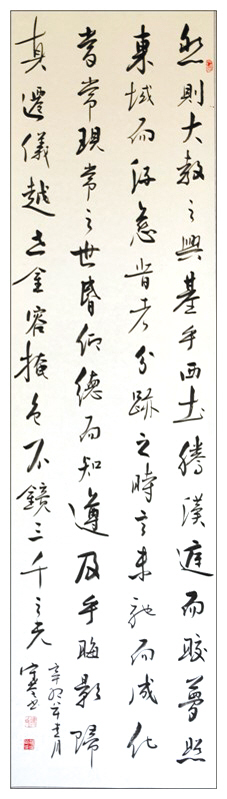 然則大教之興基乎西土騰漢庭而皎夢照
東域而流慈昔者分跡之時言未馳而成化
當常現常之世昏仰德而知遵及乎晦影歸
真遷儀越世金容掩色不鏡三千之光
辛卯年